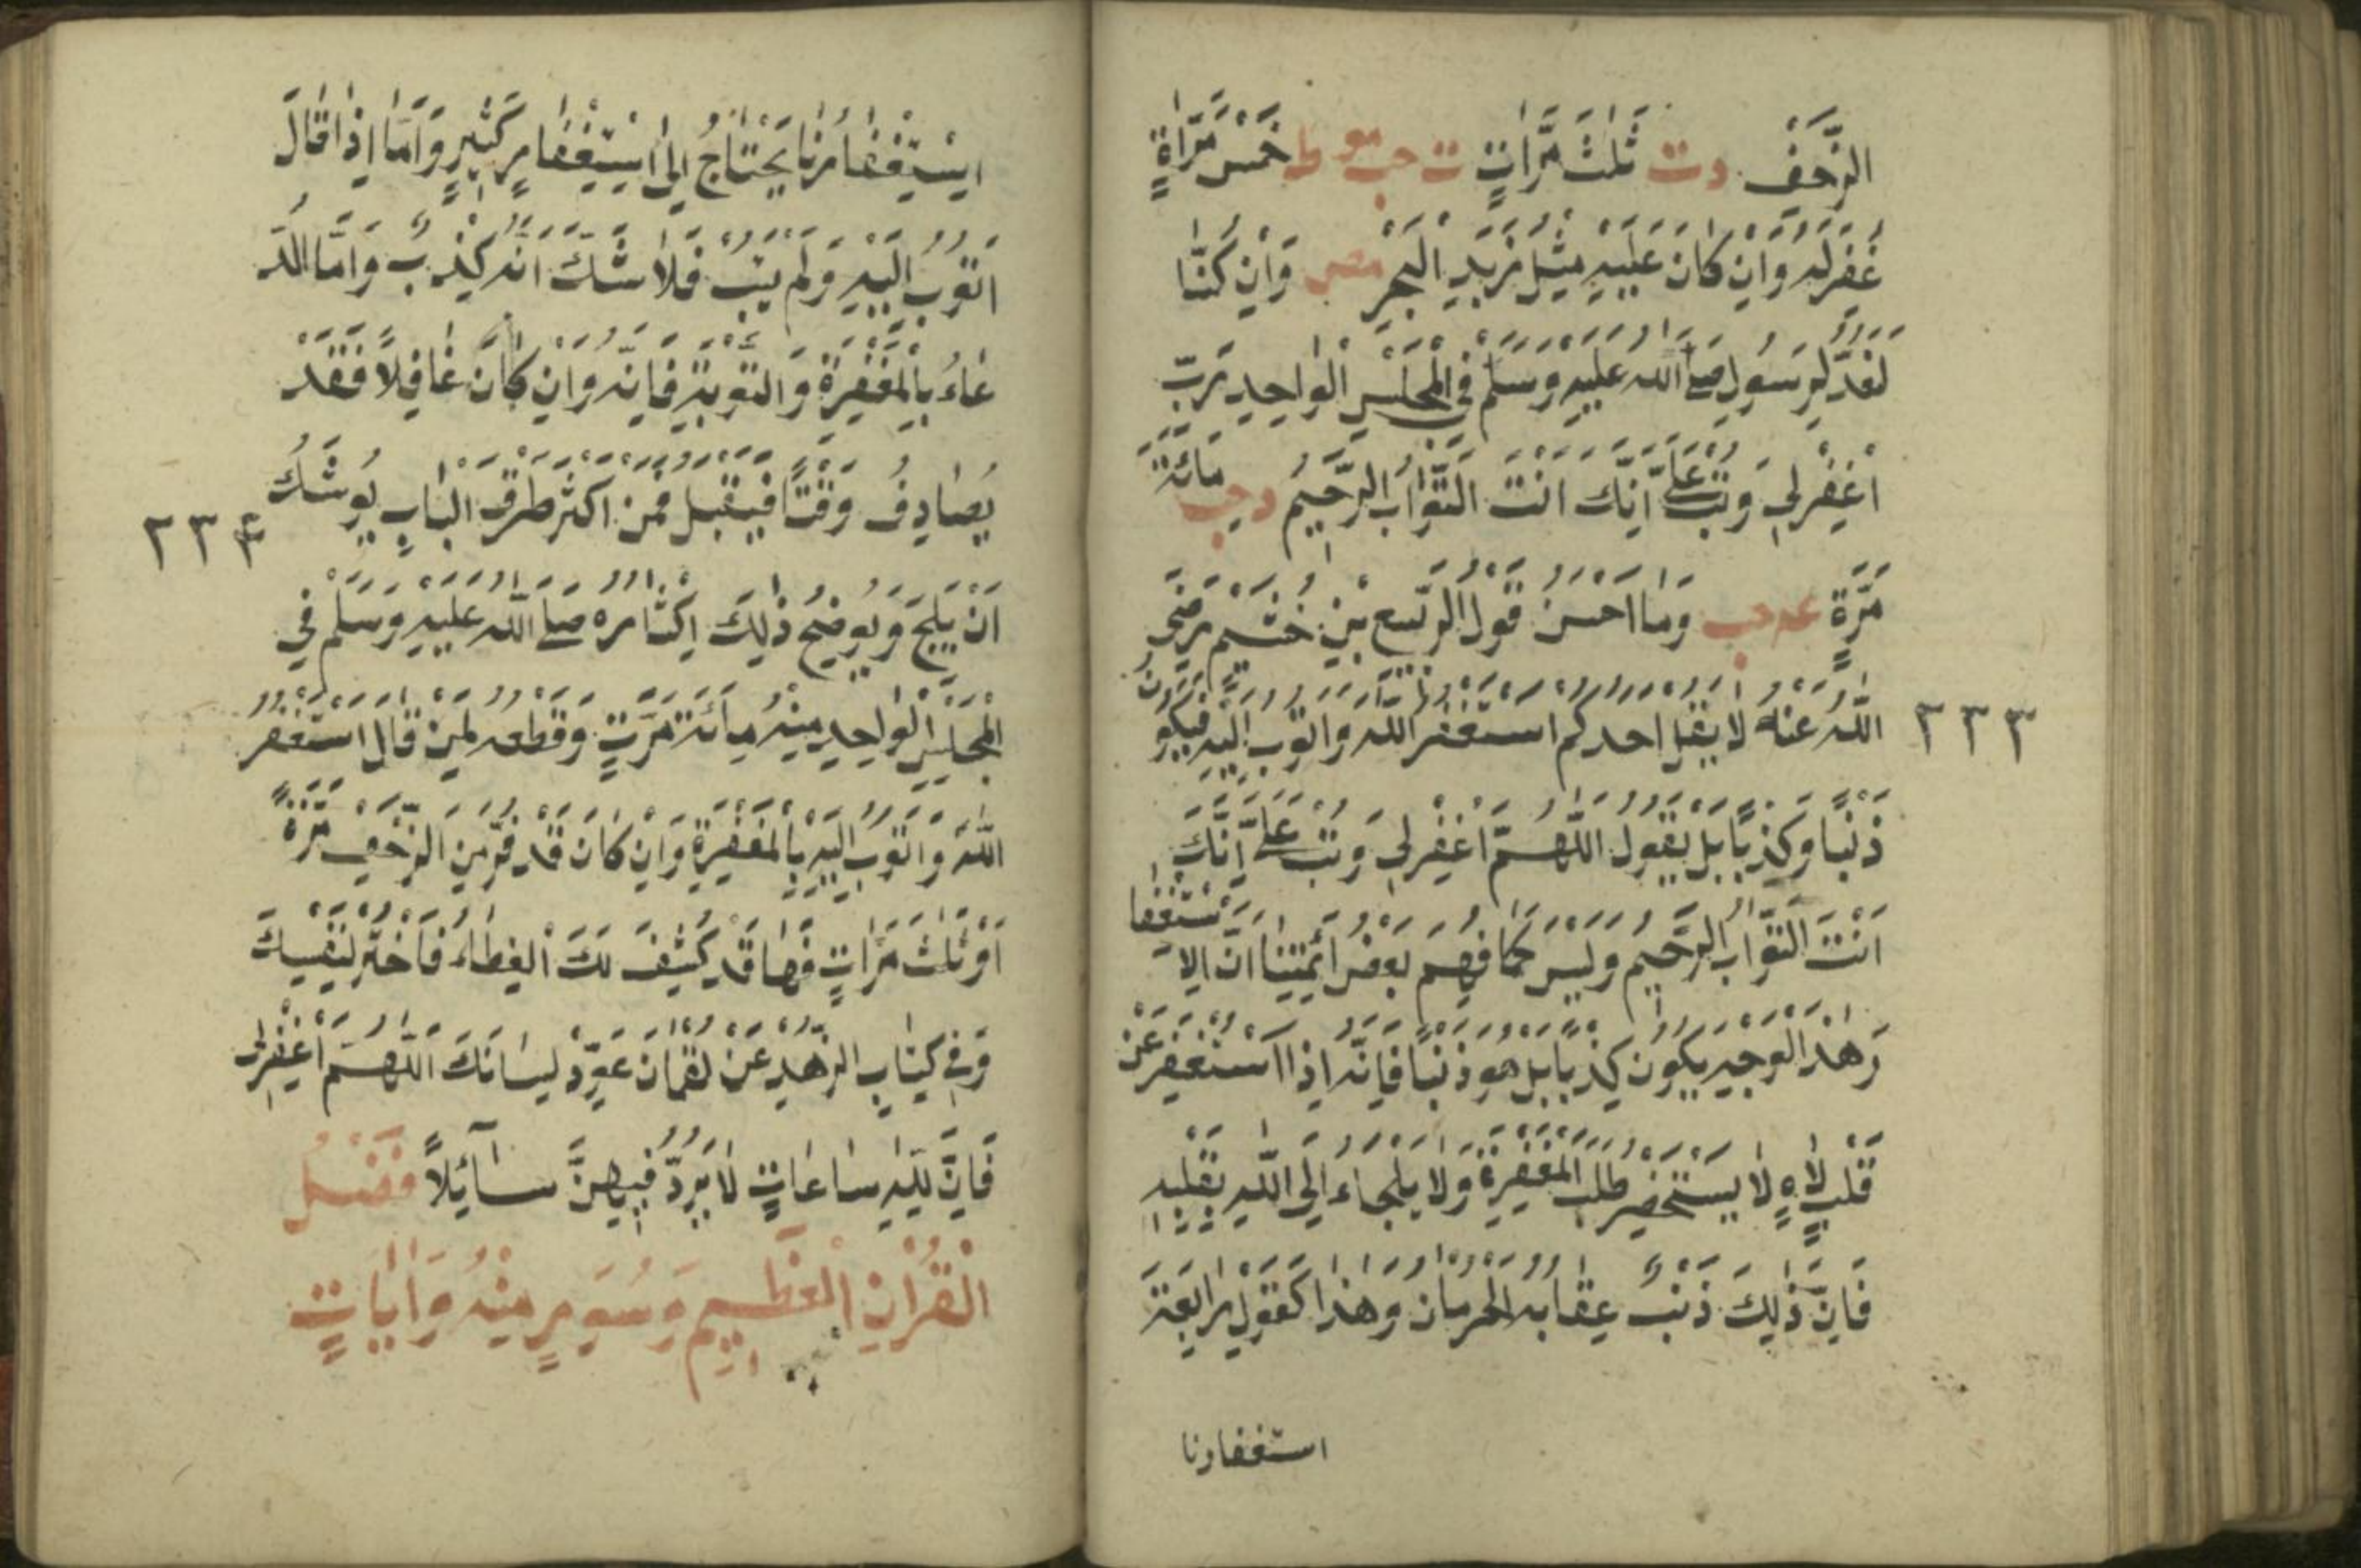 الزَّحْفِ دت ثَلٰثَ مَرَّاتٍ ت حب مو ط خَمْسَ مَرَّاةٍ
غُفِرَ لَهُ وَاِنْ كَانَ عَلَيْهِ مِثْلُ زَبَدِ الْبَحْرِ مص وَاِنْ كُنَّا
لَنَعُدُّ لِرَسُولِ صَلَّى اللّٰهُ عَلَيْهِ وَسَلَّمَ فِى الْمَجْلِسِ الْوَاحِدِ رَبِّ
اغْفِرْ لِى وَتُبْ عَلَىَّ اِنَّكَ اَنْتَ التَّوَّابُ الرَّحِيمُ دحب مِائَةَ
مَرَّةٍ عه حب وَمَا اَحْسَنَ قَوْلُ الرَّبِيعِ بْنِ خُثَيْمٍ رَضِىَ
٢٣٣
اللّٰهُ عَنْهُ لَا يَقُلْ اَحَدُكُمْ اَسْتَغْفِرُ اللّٰهَ وَاَتُوبُ اِلَيْهِ فَيَكُونُ
ذَنْبًا وَكِذْبًا بَلْ يَقُولُ اللّٰهُمَّ اغْفِرْ لِى وَتُبْ عَلَىَّ اِنَّكَ
اَنْتَ التَّوَّابُ الرَّحِيمُ وَلَيْسَ كَمَا فَهِمَ بَعْضُ اَئِمَّتِنَا اَنَّ الِاسْتِغْفَا
رَ هٰذَ الْوَجِهِ يَكُونُ كِذْبًا بَلْ هُوَ ذَنْبًا فَاِنَّهُ اِذَا اسْتَغْفَرَ عَنْ
قَلْبٍ لَاهٍ لَا يَسْتَحْضِرُ طَلَبَ الْمَغْفِرَةِ وَلَا يَلْجَاءُ اِلَى اللّٰهِ بِقَلْبِهِ
فَاِنَّ ذٰلِكَ ذَنْبٌ عِقَابُهُ الْحِرْمَانُ وَهٰذَا كَقَوْلِ رَابِعَةَ
استغفارنا
اِسْتِغْفَارُنَا يَحْتَاجُ اِلَى اسْتِغْفَارٍ كَثِيرٍ وَاَمَّا اِذَا قَالَ
اَتُوبُ اِلَيْهِ وَلَمْ يَتُبْ فَلَا شَكَّ اَنَّهُ كِذْبٌ وَاَمَّا الدُّ
عَاءُ بِالْمَغْفِرَةِ وَالتَّوْبَةِ فَاِنَّهُ وَاِنْ كَانَ غَافِلًا فَقَدْ
يُصَادِفُ وَقْتًا فَيُقْبَلُ فَمَنْ اَكْثَرَ طَرْقَ الْبَابِ يُوشَكُ
٢٣٤
اَنْ يَلِجَ وَيُوضِحُ ذٰلِكَ اِكْثَارُهُ صَلَّى اللّٰهُ عَلَيْهِ وَسَلَّمَ فِى
الْمَجْلِسِ الْوَاحِدِ مِنْهُ مِائَةَ مَرَّتٍ وَقَطْعُهُ لِمَنْ قَالَ اَسْتَغْفِرُ
اللّٰهَ وَاَتُوبُ اِلَيْهِ بِالْمَغْفِرَةِ وَاِنْ كَانَ قَدْ فَرَّ مِنَ الزَّحْفِ مَرَّةً
اَوْ ثَلٰثَ مَرَّاتٍ فَهَا قَدْ كُشِفَ لَكَ الْغِطَاءُ فَاخْتَرْ لِنَفْسِكَ
وَفِى كِتَابِ الزُّهْدِ عَنْ لُقْمَانَ عَوِّدْ لِسَانَكَ اللّٰهُمَّ اغْفِرْ لِى
فَاِنَّ لِلّٰهِ سَاعَاتٍ لَا يَرُدُّ فِيهِنَّ سَآئِلًا فَضْلُ
الْقُرْاٰنِ الْعَظِيمِ وَسُوَرٍ مِنْهُ وَاٰيَاتٍ